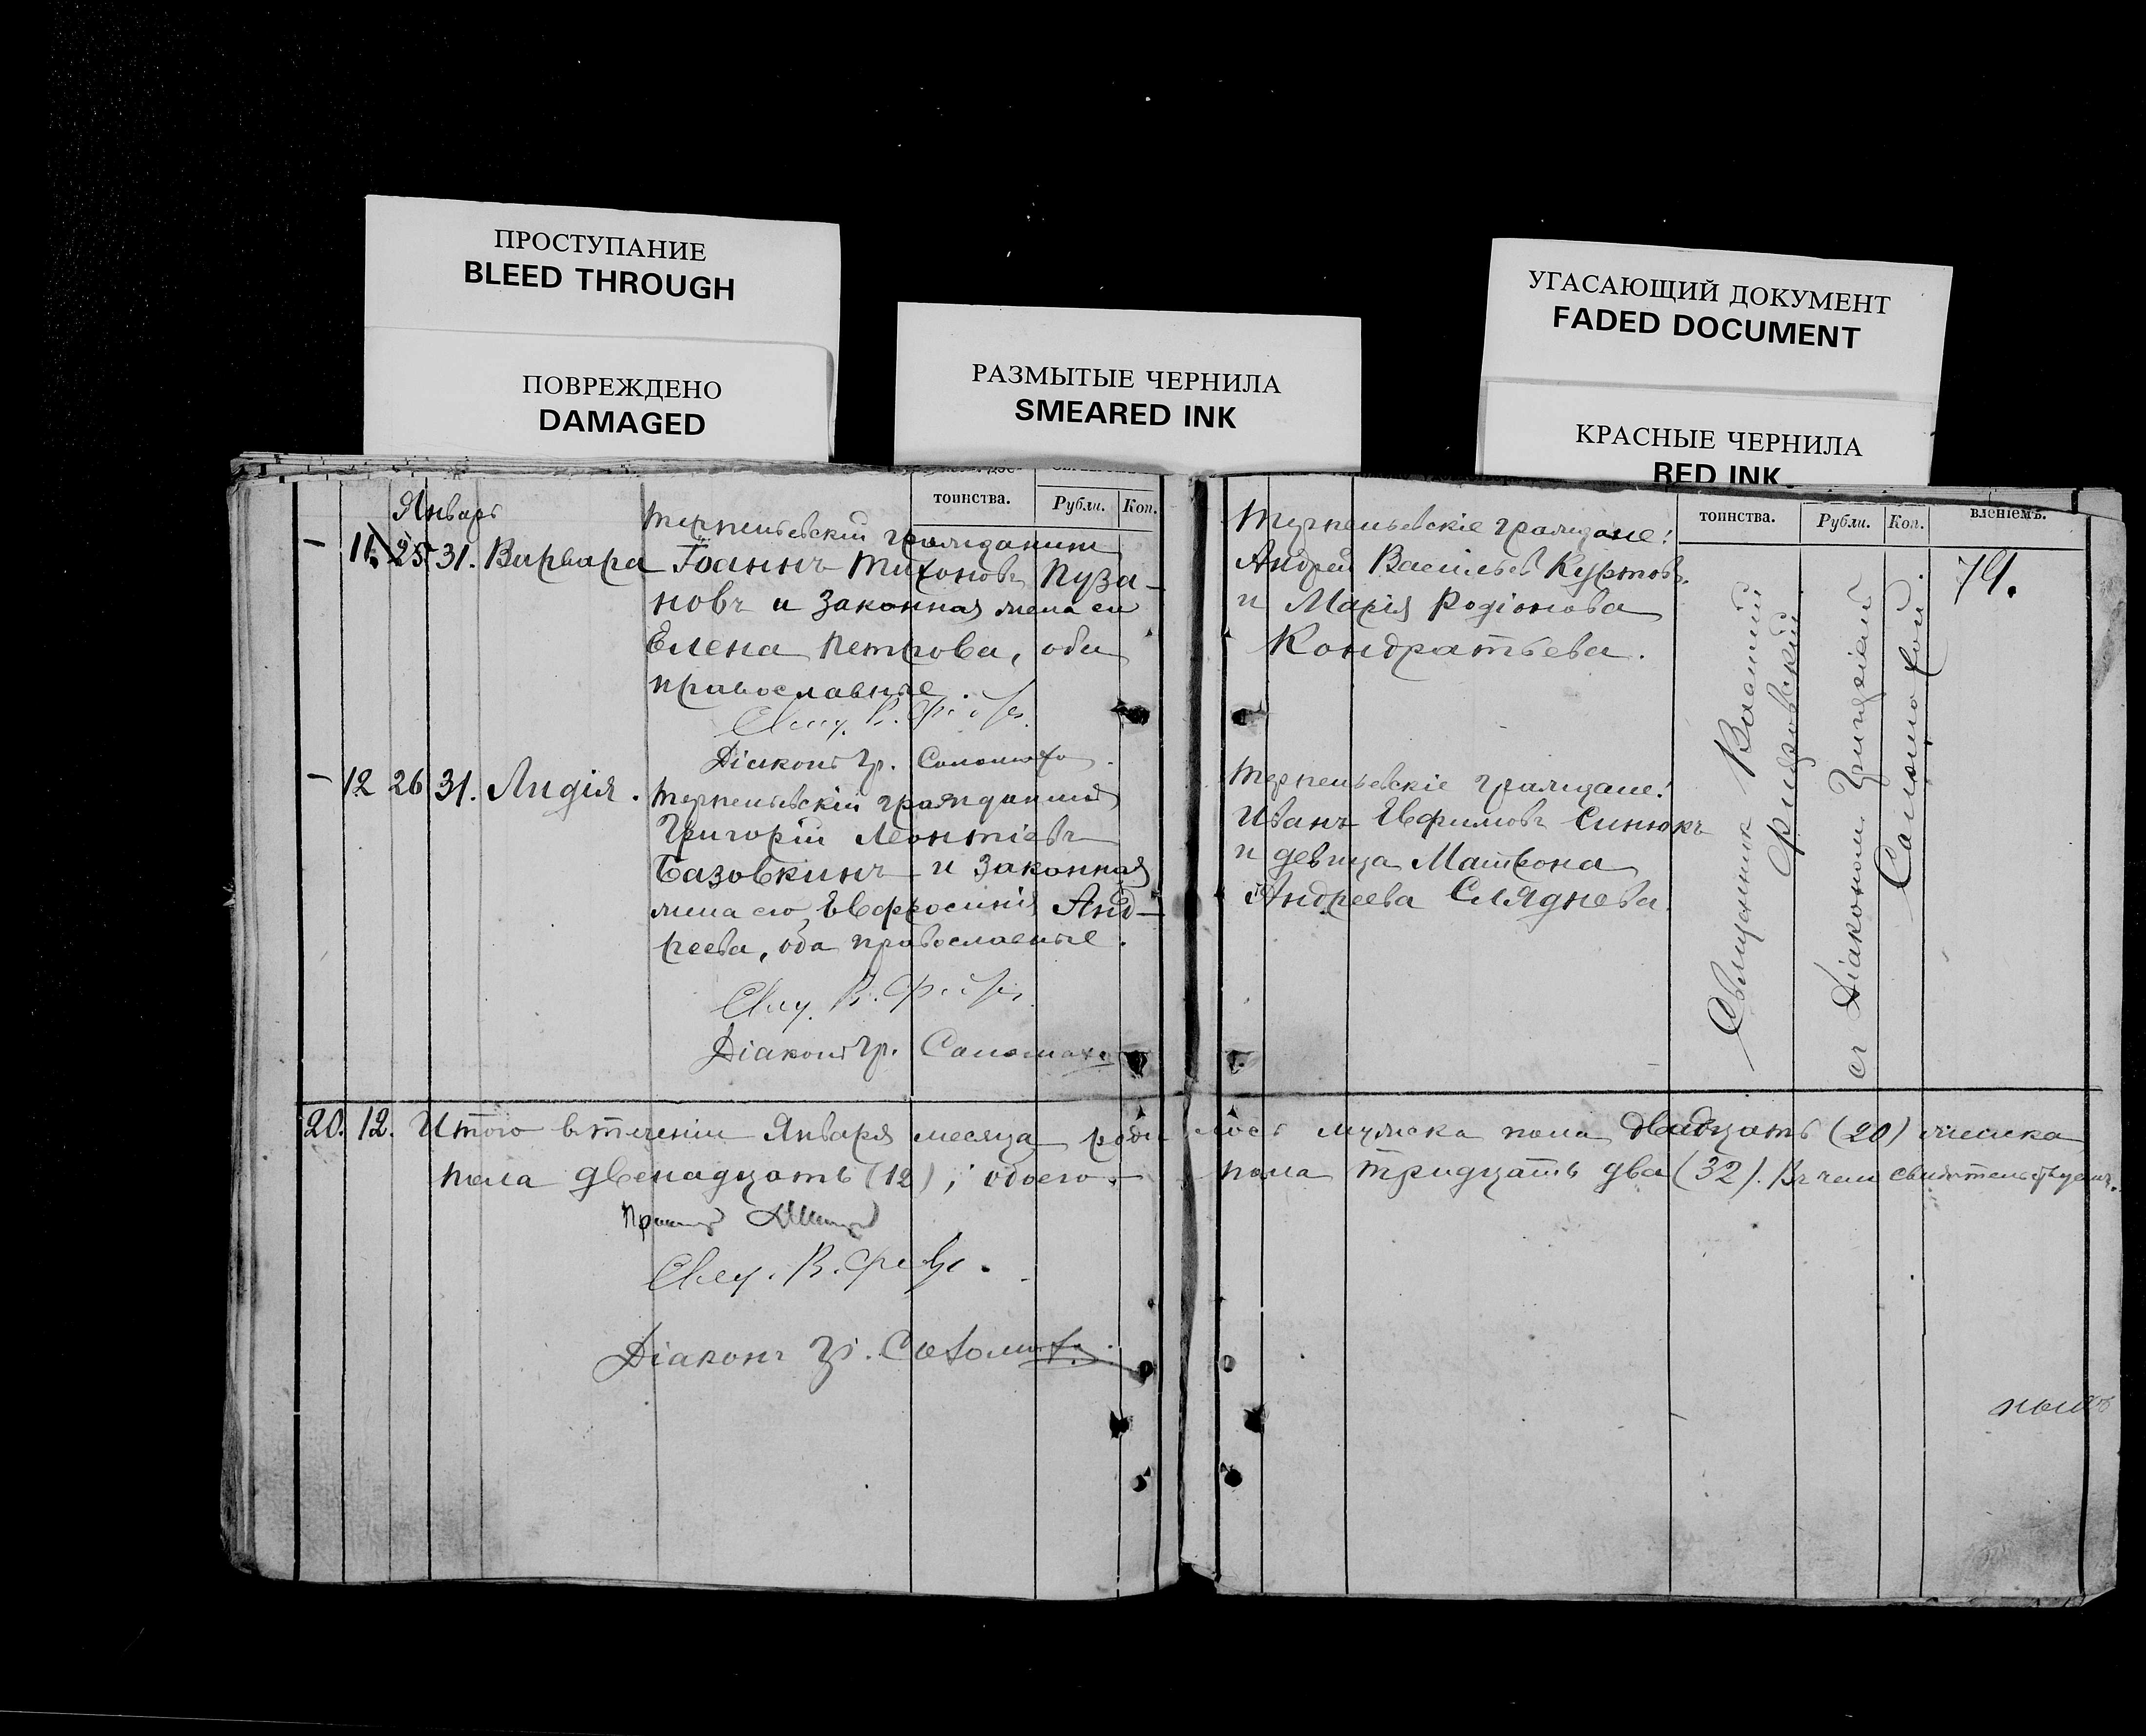 ПРОСТУПАНИЕ
BLEED THROUGH
ПОВРЕЖДЕНО
DAMAGED
РАЗМЫТЫЕ ЧЕРНИЛА
SMEARED INK
УГАСАЮЩИЙ ДОКУМЕНТ
FADED DOCUMENT
КРАСНЫЕ ЧЕРНИЛА
RED INK
тоинства. Рубли. Коп.
Январь
Терпеньевскій гражданинъ
— 11. 25 31. Варвара Іоаннъ Тихоновъ Пуза-
новъ и законная жена его
Елена Петрова, оба
православные.
Свящ. В.
Діаконъ Гр. Соломаха.
— 12 26 31. Лидія. Терпеньевскій гражданинъ
Григорій Леонтіевъ
Базовкинъ и законная
жена его Евфросинія Анд-
реева, оба православные.
Свящ. В.
Діаконъ Гр. Соломаха
20. 12. Итого въ теченіи Января месяца роди
пола двенадцать (12); обоего
Свящ. В.
Діаконъ Гр. Соломаха.
тоинства. Рубли. Коп. влeніемъ.
Терпеньевскіе граждане:
Андрей Васильевъ Куртовъ.
и Марія Родіонова
Кондратьева.
74.
Терпеньевскіе граждане:
Иванъ Евфимовъ Синюкъ
и девица Матрона
Андреева Сляднева.
Священник Василий
съ Діакономъ Григоріемъ
Соломахой.
лось мужска пола двадцать (20) женска
пола тридцать два (32). Въ чем свидетельствуемъ.